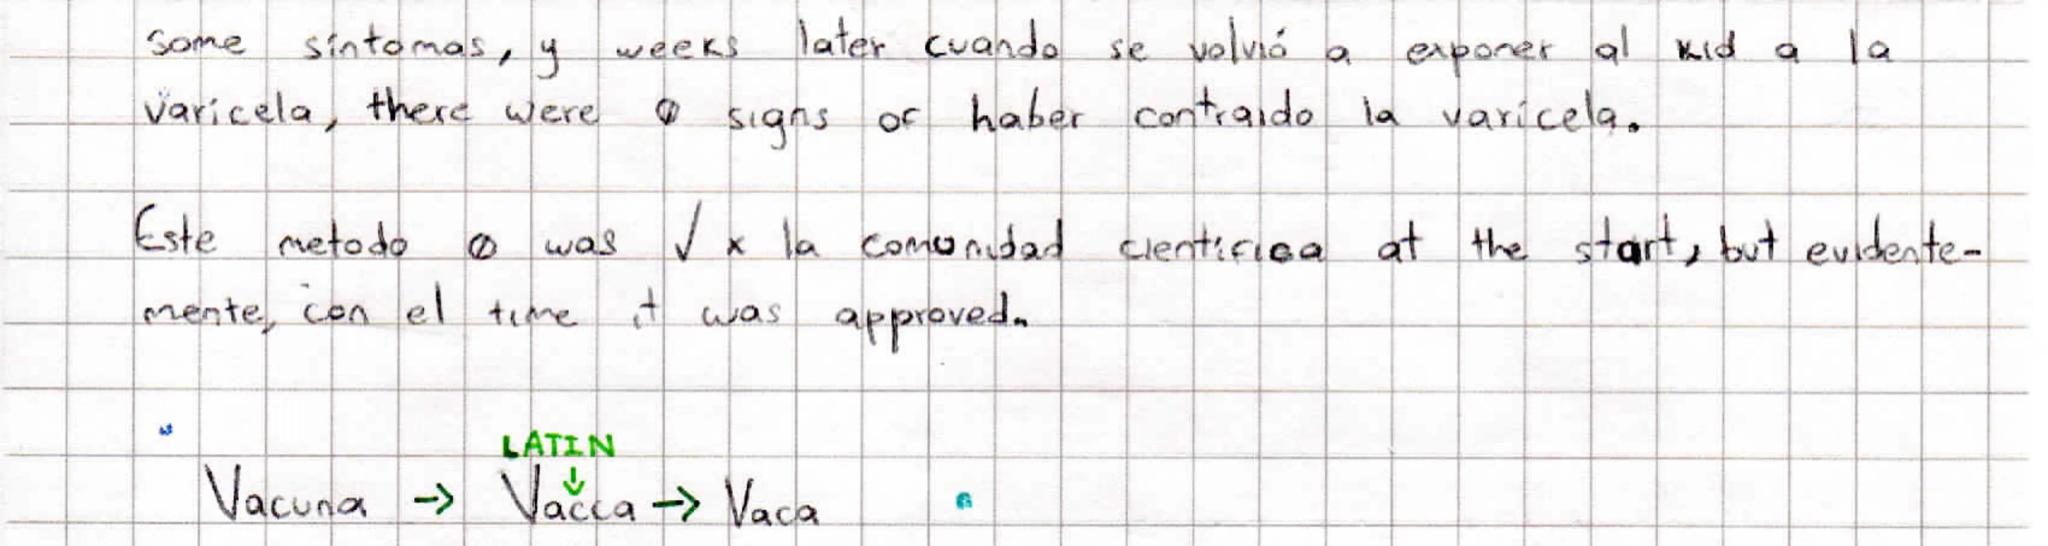 some síntomas, y weeks later cuando se volvió a exponer al kid a la
varicela, there were Ø signs of haber contraido la varicela.
Este metodo Ø was √ x la comunidad cientifica at the start, but evidente-
mente, con el time it was approved.
LATIN
↓
Vacuna → Vacca → Vaca